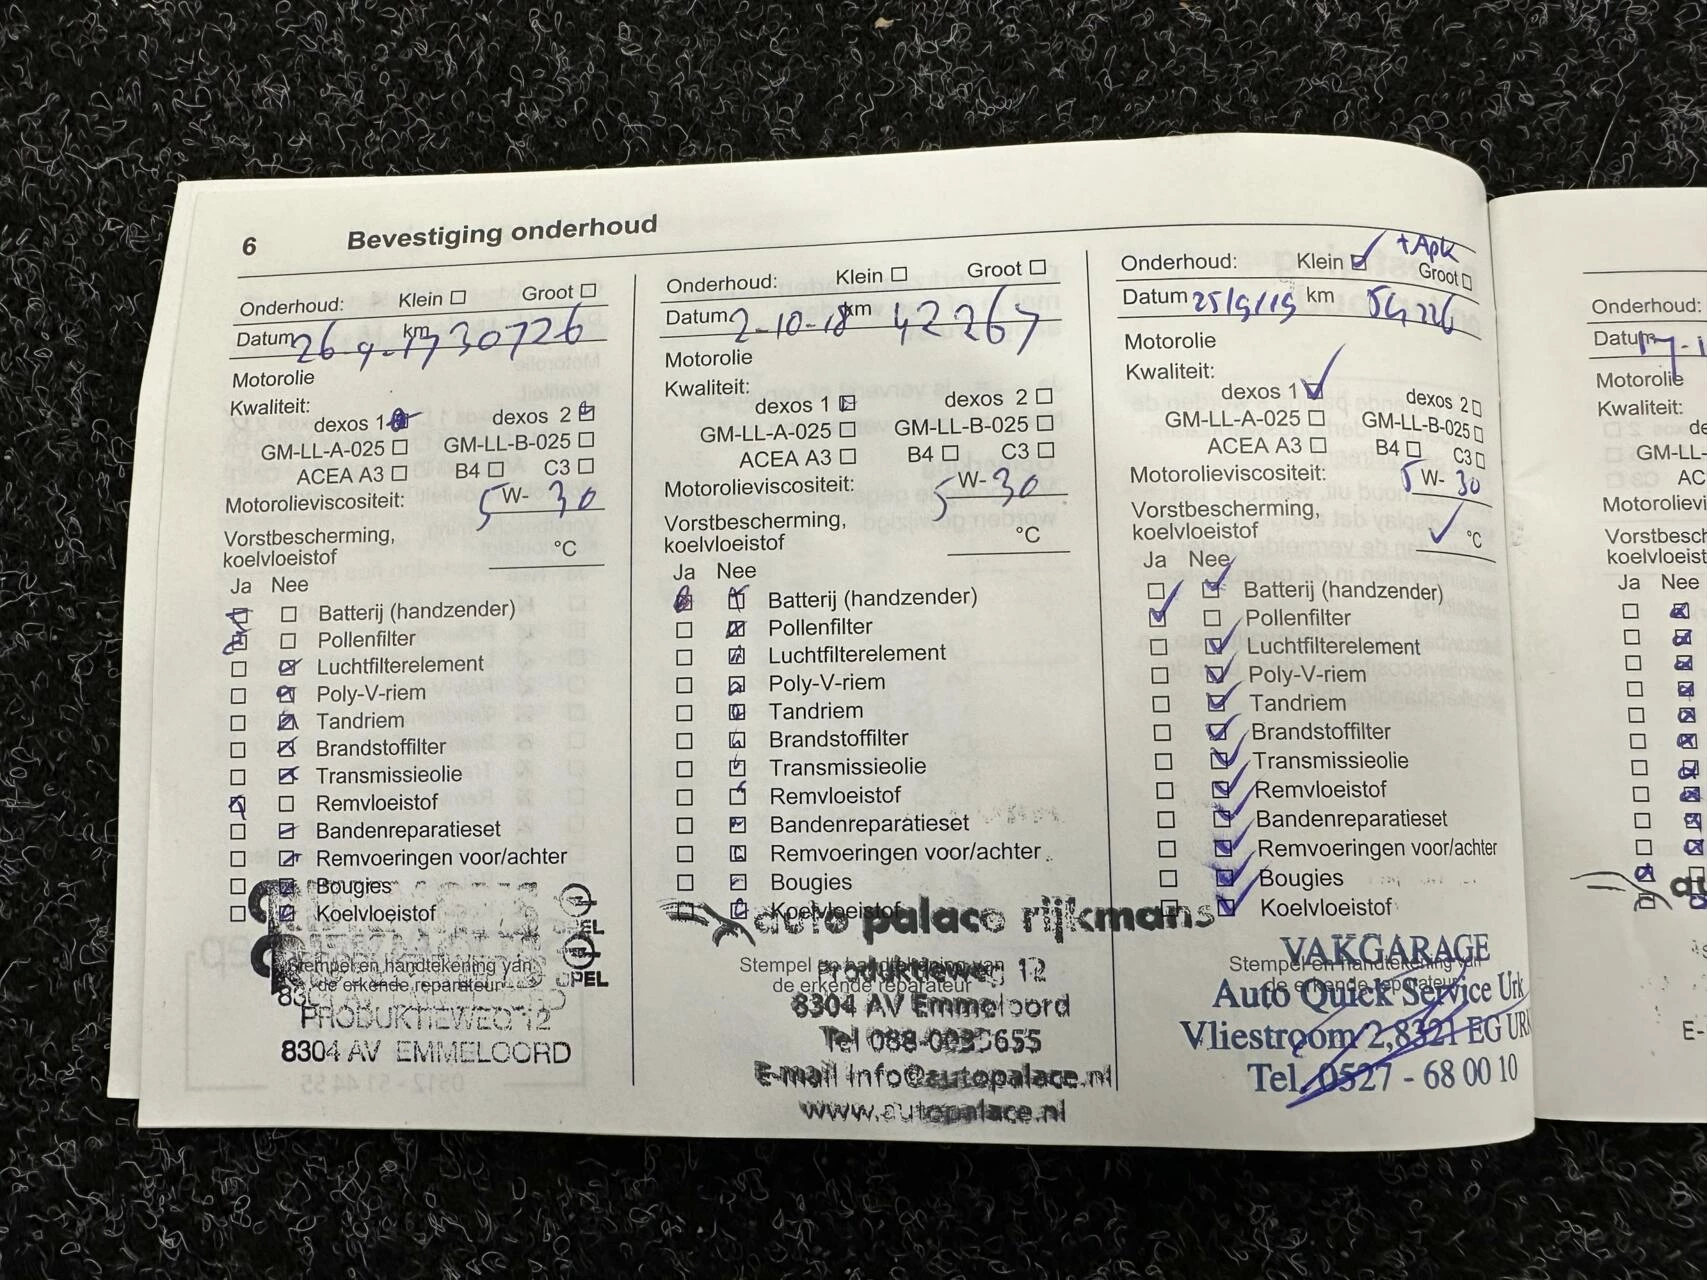 6 Bevestiging onderhoud
Onderhoud: Klein Groot
Datum 26-9-17 km 30726
Motorolie
Kwaliteit:
dexos 1 dexos 2
GM-LL-A-025 GM-LL-B-025
ACEA A3 B4 C3
Motorolieviscositeit: 5 W- 30
Vorstbescherming,
koelvloeistof °C
Ja Nee
Batterij (handzender)
Pollenfilter
Luchtfilterelement
Poly-V-riem
Tandriem
Brandstoffilter
Transmissieolie
Remvloeistof
Bandenreparatieset
Remvoeringen voor/achter
Bougies
Koelvloeistof
OPEL
Stempel en handtekening van
de erkende reparateur
PRODUKTIEWEG 12
8304 AV EMMELOORD
Onderhoud: Klein Groot
Datum 2-10-18 km 42267
Motorolie
Kwaliteit:
dexos 1 dexos 2
GM-LL-A-025 GM-LL-B-025
ACEA A3 B4 C3
Motorolieviscositeit: 5 W- 30
Vorstbescherming,
koelvloeistof °C
Ja Nee
Batterij (handzender)
Pollenfilter
Luchtfilterelement
Poly-V-riem
Tandriem
Brandstoffilter
Transmissieolie
Remvloeistof
Bandenreparatieset
Remvoeringen voor/achter
Bougies
Koelvloeistof
auto palace rijkmans
Stempel en handtekening van
de erkende reparateur
Produktieweg 12
8304 AV Emmeloord
Tel 088-0035655
E-mail Info@autopalace.nl
www.autopalace.nl
+ Apk
Onderhoud: Klein Groot
Datum 25/9/19 km
Motorolie
Kwaliteit:
dexos 1 dexos 2
GM-LL-A-025 GM-LL-B-025
ACEA A3 B4 C3
Motorolieviscositeit: 5 W- 30
Vorstbescherming,
koelvloeistof °C
Ja Nee
Batterij (handzender)
Pollenfilter
Luchtfilterelement
Poly-V-riem
Tandriem
Brandstoffilter
Transmissieolie
Remvloeistof
Bandenreparatieset
Remvoeringen voor/achter
Bougies
Koelvloeistof
VAKGARAGE
Stempel en handtekening van
de erkende reparateur
Auto Quick Service Urk
Vliestroom 2,8321 EG URK
Tel. 0527 - 68 00 10
Onderhoud:
Datum
Motorolie
Kwaliteit:
de
GM-LL-
AC
Motorolievi
Vorstbesch
koelvloeist
Ja Nee
au
E-